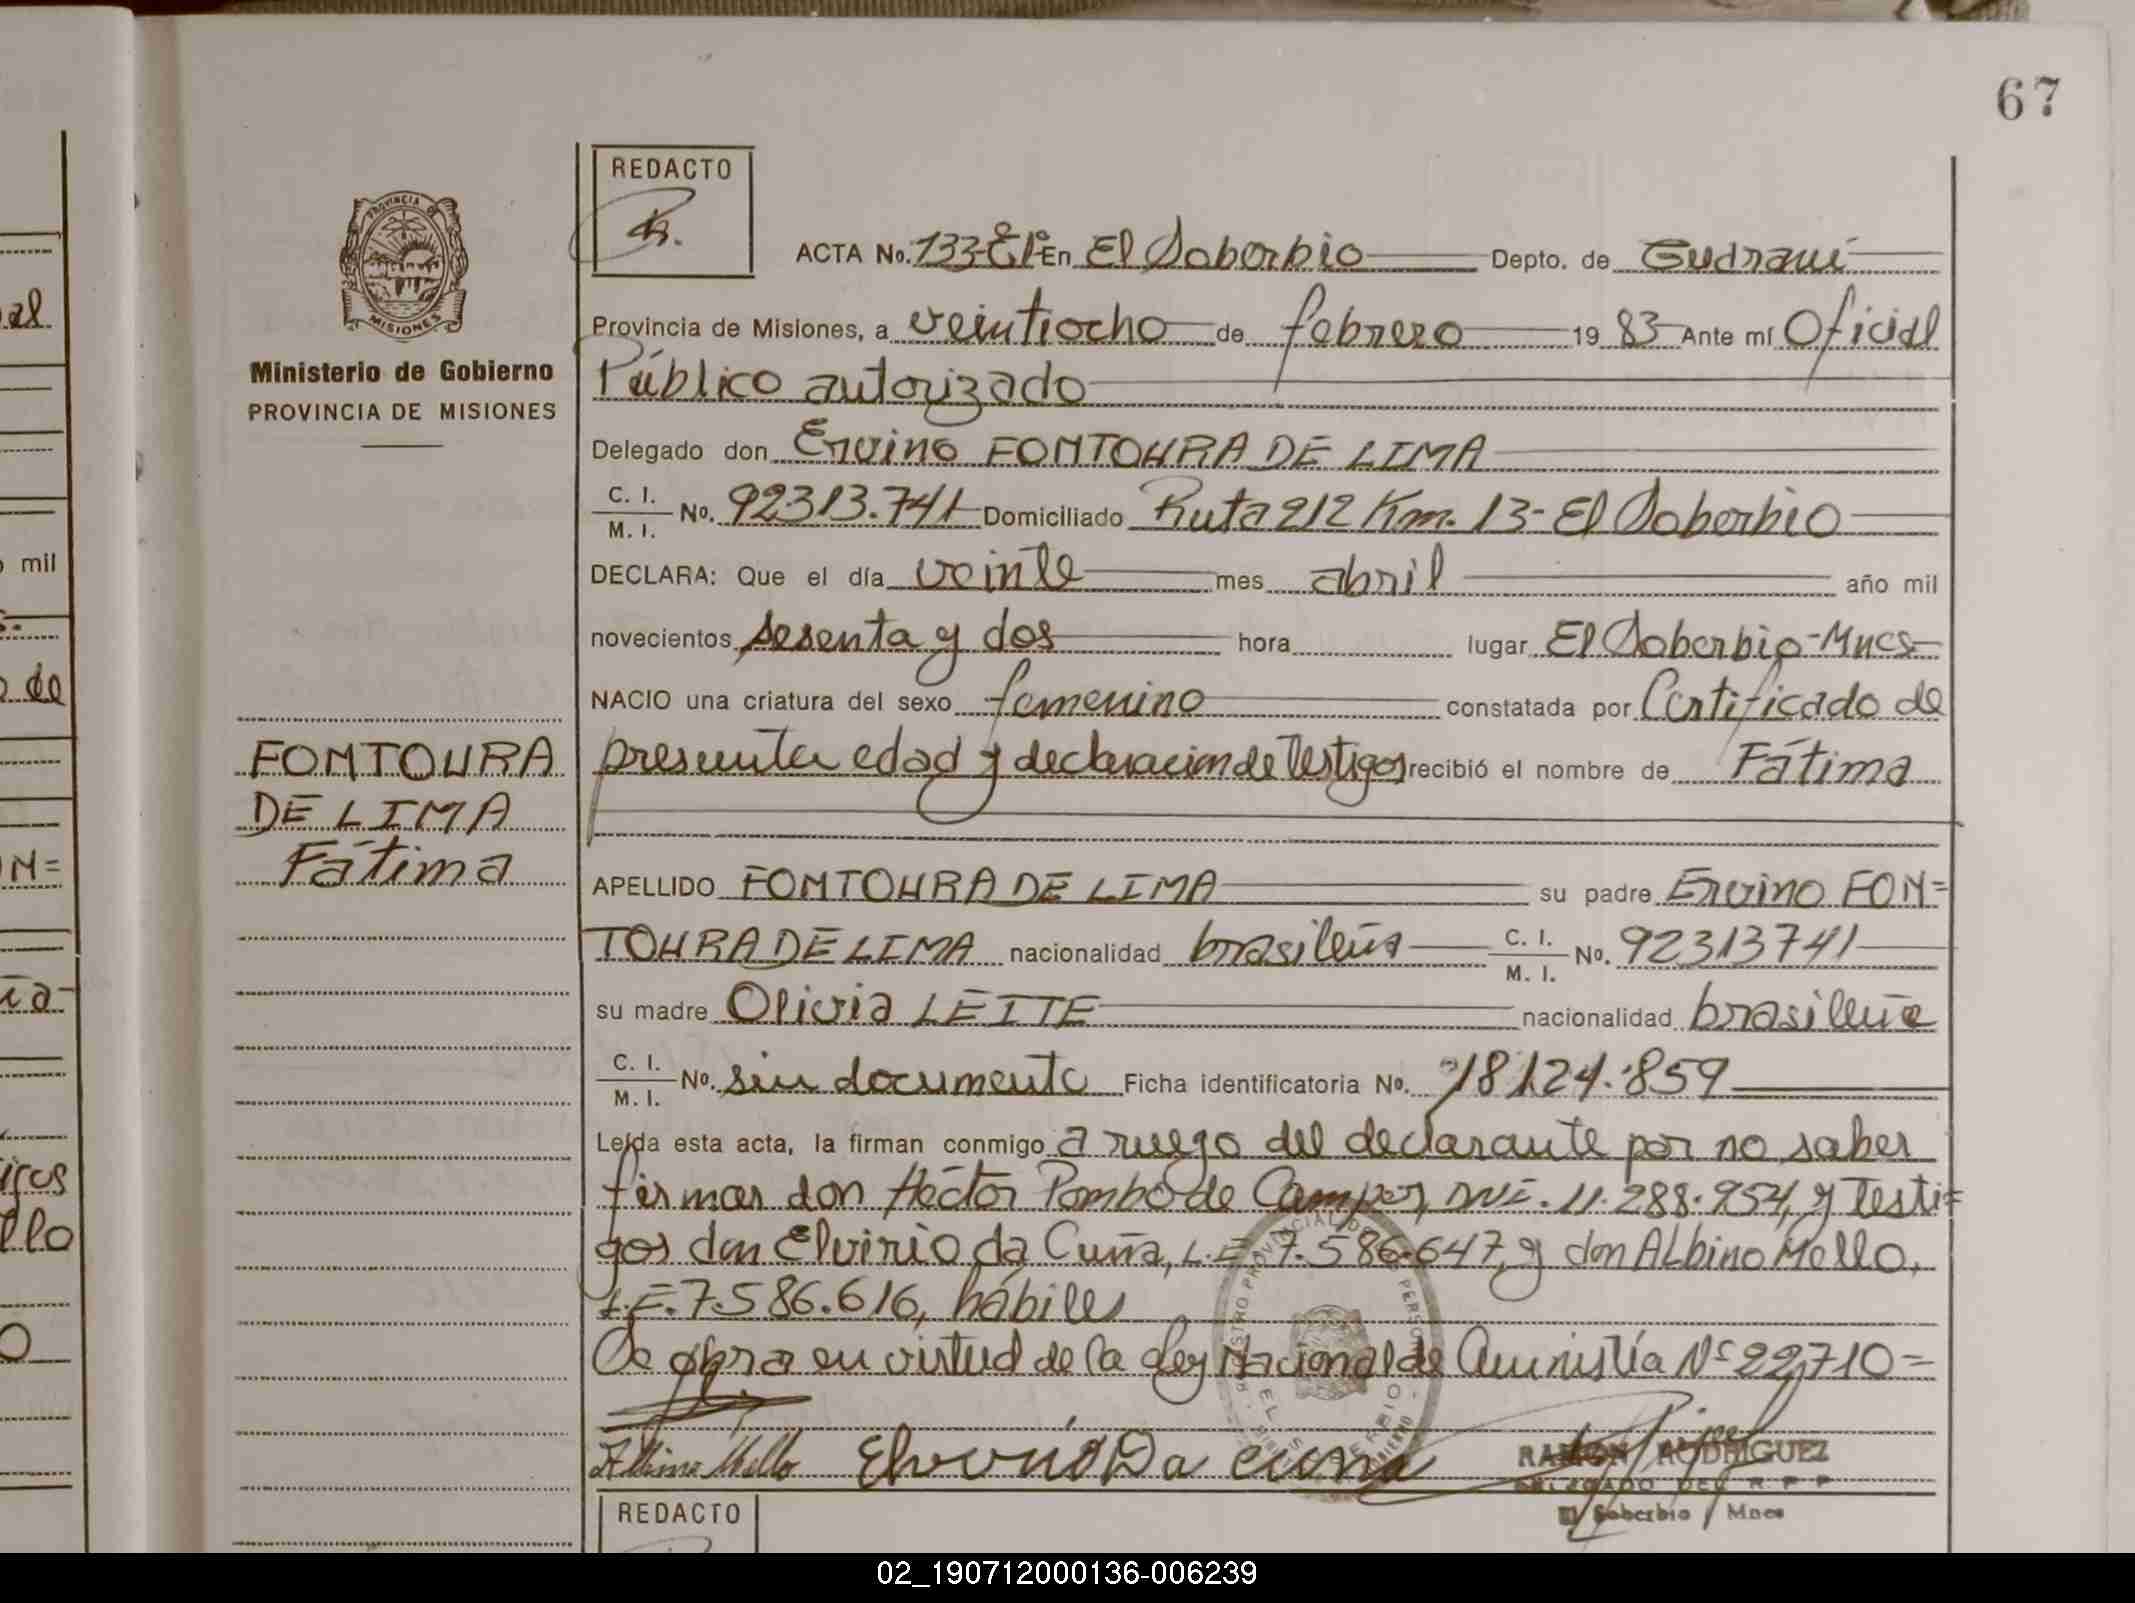 67
REDACTO
ACTA No. 133-El° En El Soberbio Depto. de Guaraní
Provincia de Misiones, a veintiocho de febrero 1983 Ante mí Oficial
Público autorizado
Delegado don Ervino FONTOURA DE LIMA
C. I.
M. I. No. 92313.741 Domiciliado Ruta 212 Km. 13- El Soberbio
DECLARA: Que el día veinte mes abril año mil
novecientos sesenta y dos hora lugar El Soberbio-Mnes
NACIO una criatura del sexo femenino constatada por Certificado de
presunta edad y declaracion de Testigos recibió el nombre de Fátima
APELLIDO FONTOURA DE LIMA su padre Ervino FON=
TOURA DE LIMA nacionalidad brasileña C. I.
M. I. No. 92313741
su madre Olivia LEITE nacionalidad brasileña
C. I.
M. I. No. sin documento Ficha identificatoria No. 18124.859
Leída esta acta, la firman conmigo a ruego del declarante por no saber
firmar don Héctor Pombo de Campos, DNI. 11.288.954, y Testi=
gos don Elvirio da Cuña, L.E 7.586.647, y don Albino Mello,
L.E. 7.586.616, hábiles
Se obra en virtud de la Ley Nacional de Amnistía N° 22,710=
Albino Mello Elvirio Da cuna
RAMON RODRIGUEZ
DELEGADO DEL R.P.P
El Soberbio / Mnes
REDACTO
PROVINCIA D
MISIONES
Ministerio de Gobierno
PROVINCIA DE MISIONES
FONTOURA
DE LIMA
Fátima
al
mil
de
N=
ia-
llo
o
02_190712000136-006239